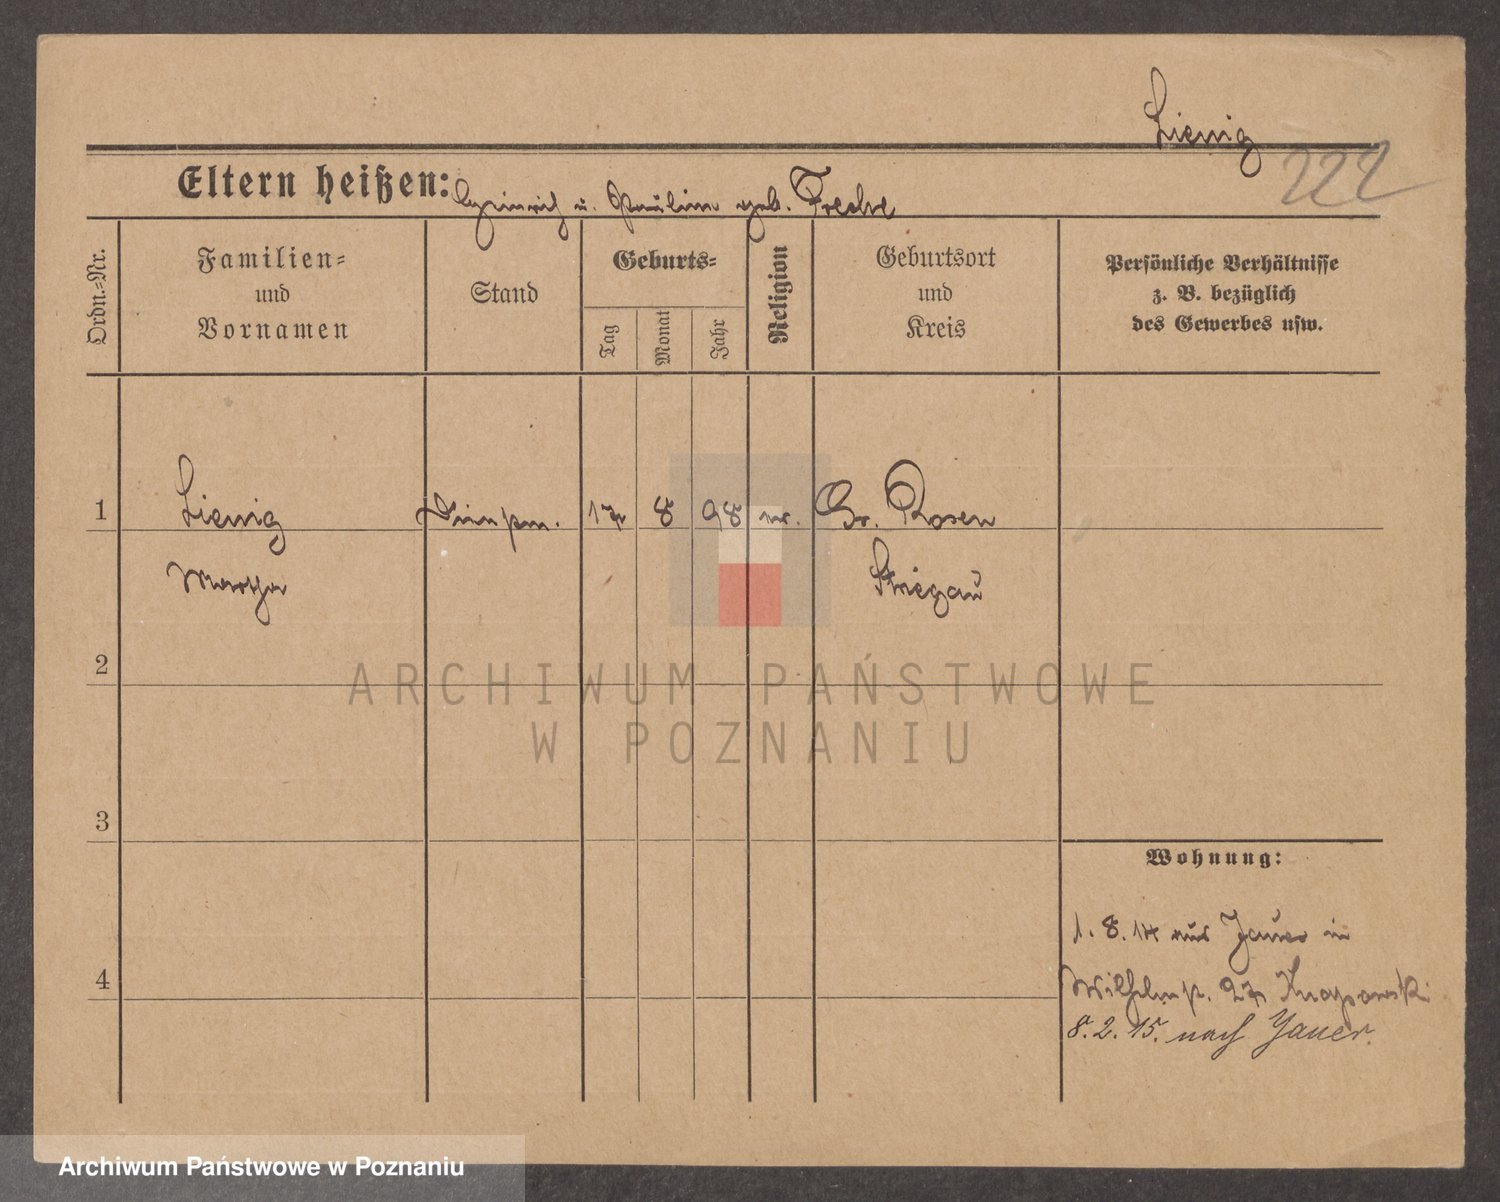 Lienig
222
Eltern heißen: Heinrich u. Pauline geb. Freche
Ordn.-Nr.
Familien-
und
Vornamen
Stand
Geburts-
Tag
Monat
Jahr
Religion
Geburtsort
und
Kreis
Persönliche Verhältnisse
z. B. bezüglich
des Gewerbes usw.
1
Lienig
17 8 98
Gr. Rosen
Martha
Striegau
2
ARCHIWUM PAŃSTWOWE
W POZNANIU
3
Wohnung:
1. 8. 14 aus Jauer in
4
Wilhelmstr. 27 Knapowski
8. 2. 15. nach Jauer.
Archiwum Państwowe w Poznaniu